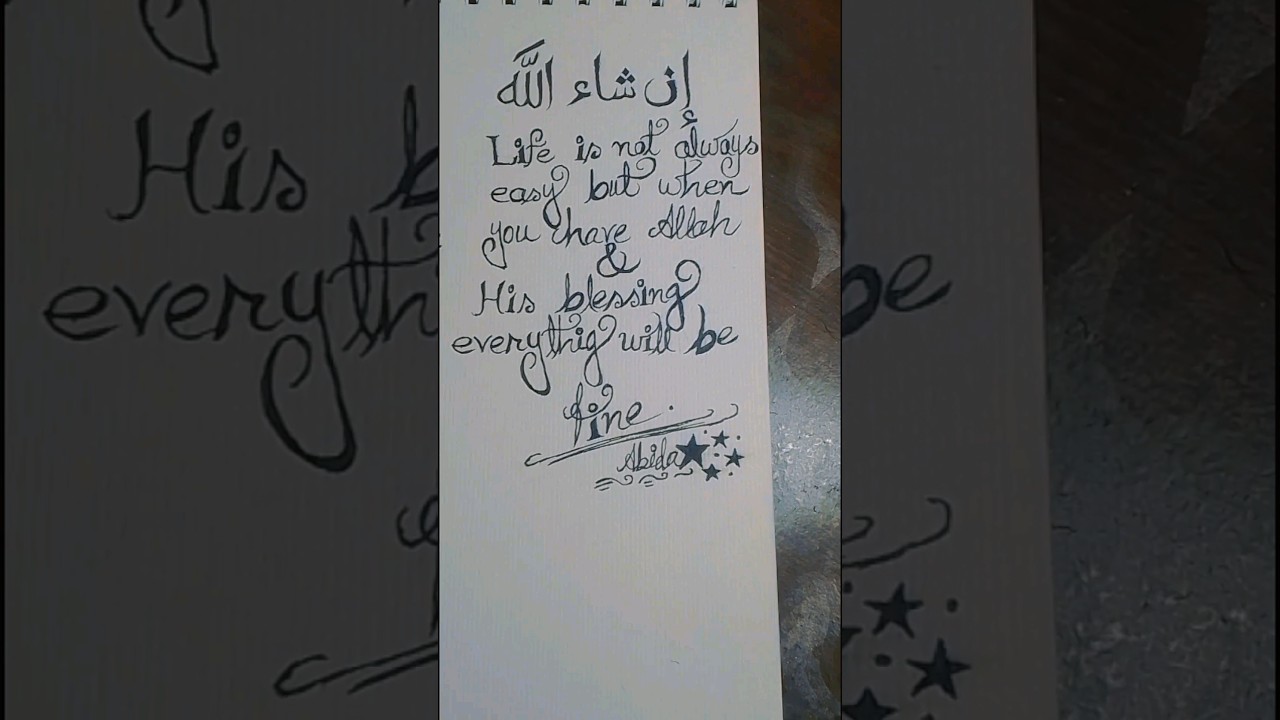 إن شاء الله
Life is not always
easy but when
you have Allah
&
His blessing
everythig will be
fine.
Abida